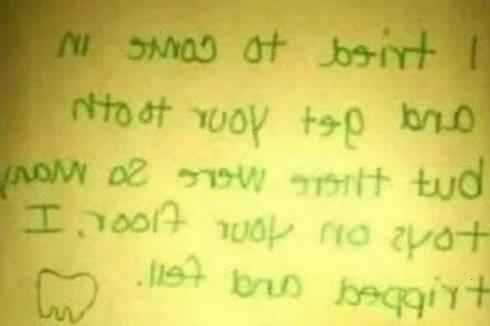 I tried to come in
and get your tooth
but there were so many
toys on your floor. I
tripped and fell.